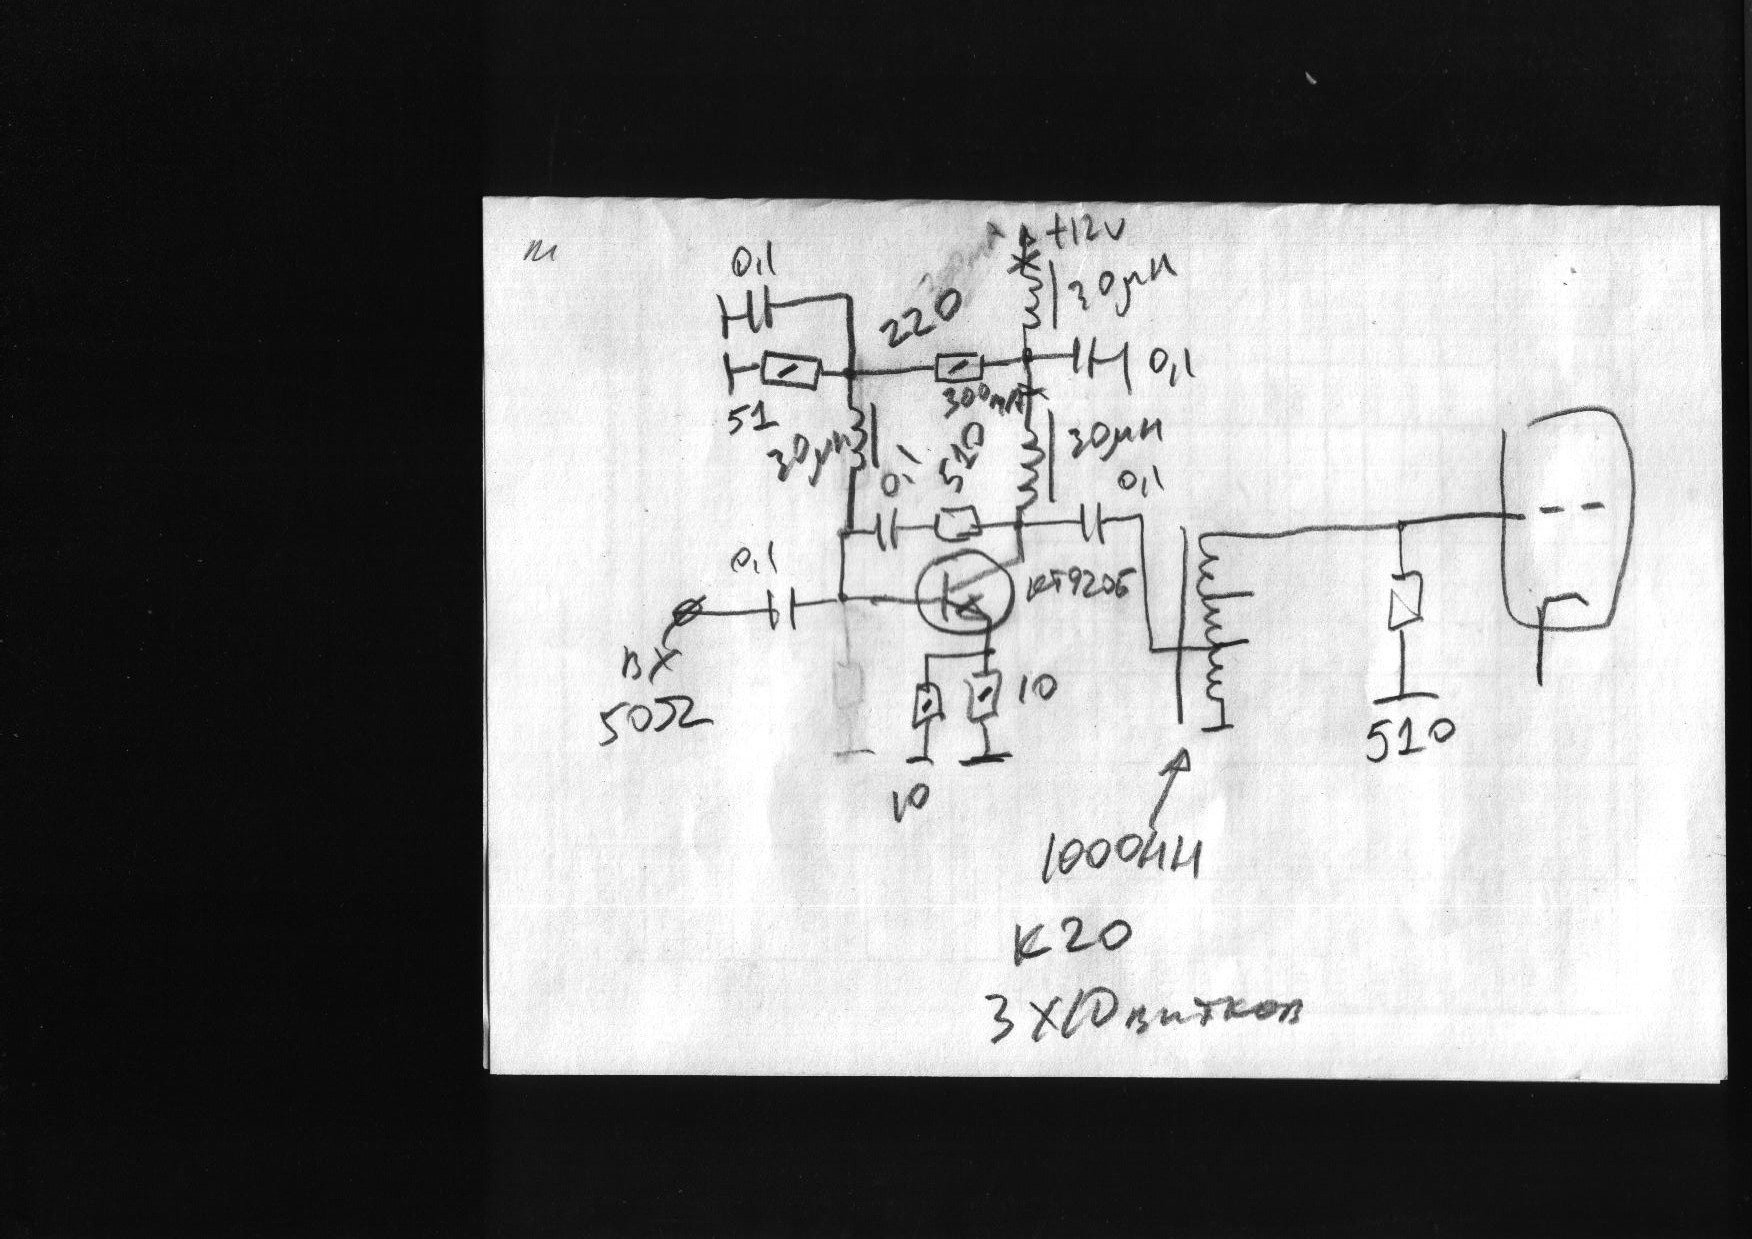 +12V
0,1
30μH
220
0,1
300mA
51
30μH
30μH
0,1
510
0,1
0,1
КТ920Б
ВХ
50Ω
10
10
510
1000НН
К20
3X10 витков